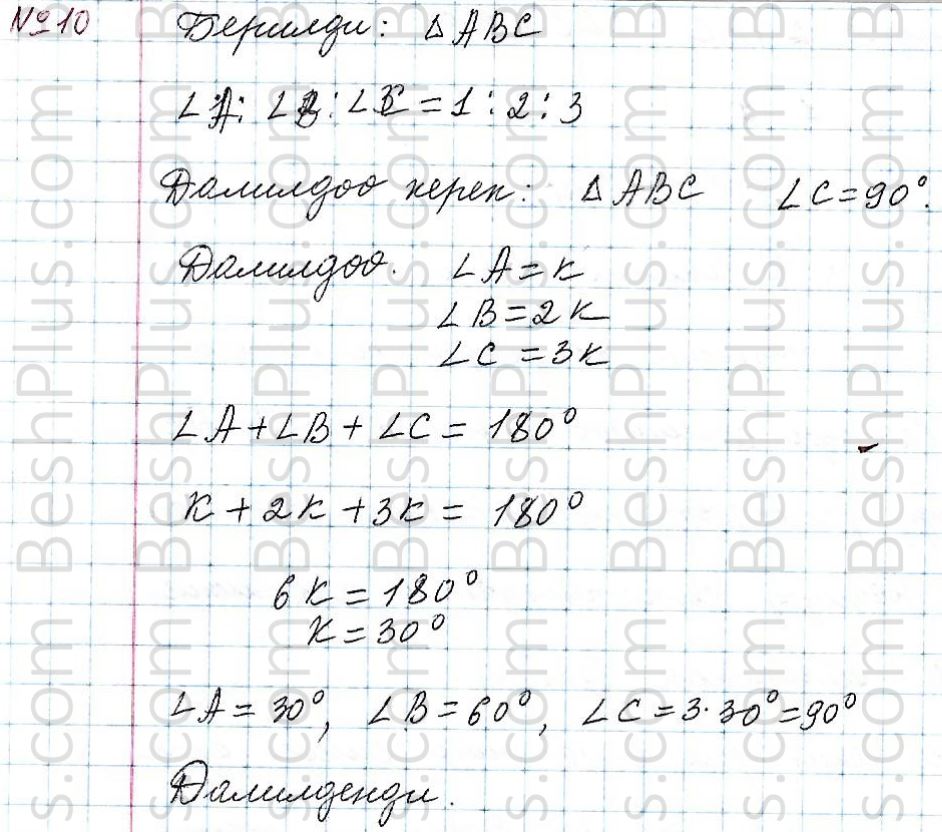 №10 Берилди: △ABC
∠A: ∠B: ∠C = 1:2:3
Далилдоо керек: △ABC ∠C=90°.
Далилдоо. ∠A=k
∠B=2k
∠C=3k
∠A+∠B+∠C= 180°
k+2k+3k= 180°
6k=180°
k=30°
∠A=30°, ∠B=60°, ∠C=3·30°=90°
Далилденди.
BeshPlus.com